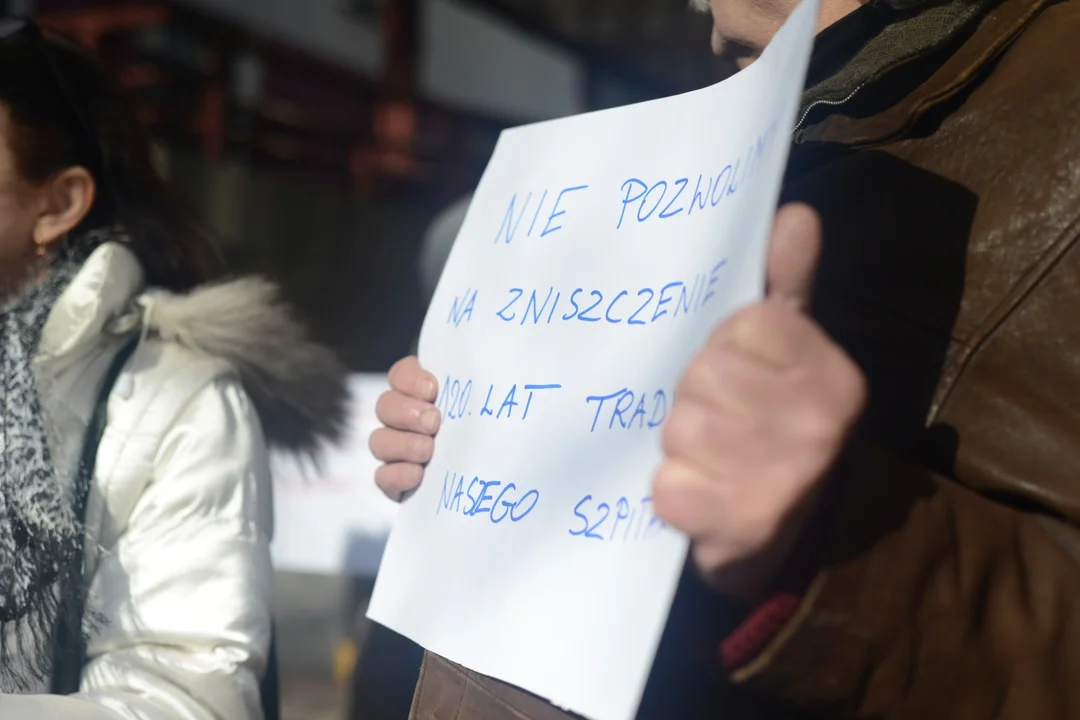 NIE POZWOLIMY
NA ZNISZCZENIE
120. LAT TRAD
NASZEGO SZPITA